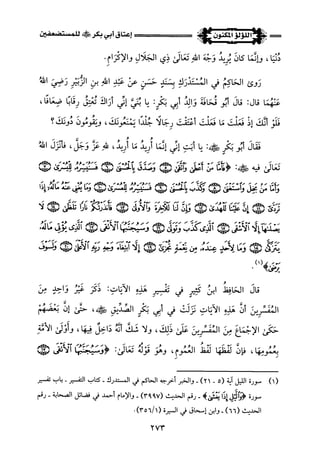 اللؤلؤ المكنون إعتاق أبي بكر للمستضعفين
دُنْيَا، وإنَّمَا كانَ يُرِيدُ وَجْهَ اللهِ تَعَالَى ذِي الجَلَالِ والإِكْرَامِ.
رَوَى الحَاكِمُ في المُسْتَدْرَكِ بِسَنَدٍ حَسَنٍ عنْ عَبْدِ اللهِ بنِ الزُّبَيْرِ رَضِيَ اللهُ
عَنْهُمَا قالَ: قالَ أَبُو قُحَافَةَ وَالِدُ أَبِي بَكْرٍ: يا بُنَيَّ إنِّي أَرَاكَ تُعْتِقُ رِقَابًا ضِعَافًا،
فَلَوْ أنَّكَ إذْ فَعَلْتَ مَا فَعَلْتَ أعْتَقْتَ رِجَالًا جُلْدًا يَمْنَعُونَكَ، ويَقُومُونَ دُونَكَ؟
فَقَالَ أَبُو بَكْرٍ: يا أبَتِ إنِّي إنَّمَا أُرِيدُ مَا أُرِيدُ، للهِ عَزَّ وَجَلَّ، فأنْزَلَ اللهُ
تَعَالَى فيهِ: ﴿فَأَمَّا مَنْ أَعْطَى وَاتَّقَى ۝ وَصَدَّقَ بِالْحُسْنَى ۝ فَسَنُيَسِّرُهُ لِلْيُسْرَى ۝
وَأَمَّا مَنْ بَخِلَ وَاسْتَغْنَى ۝ وَكَذَّبَ بِالْحُسْنَى ۝ فَسَنُيَسِّرُهُ لِلْعُسْرَى ۝ وَمَا يُغْنِي عَنْهُ مَالُهُ إِذَا
تَرَدَّى ۝ إِنَّ عَلَيْنَا لَلْهُدَى ۝ وَإِنَّ لَنَا لَلْآخِرَةَ وَالْأُولَى ۝ فَأَنْذَرْتُكُمْ نَارًا تَلَظَّى ۝ لَا
يَصْلَاهَا إِلَّا الْأَشْقَى ۝ الَّذِي كَذَّبَ وَتَوَلَّى ۝ وَسَيُجَنَّبُهَا الْأَتْقَى ۝ الَّذِي يُؤْتِي مَالَهُ
يَتَزَكَّى ۝ وَمَا لِأَحَدٍ عِنْدَهُ مِنْ نِعْمَةٍ تُجْزَى ۝ إِلَّا ابْتِغَاءَ وَجْهِ رَبِّهِ الْأَعْلَى ۝ وَلَسَوْفَ
يَرْضَى﴾(١).
قالَ الحَافِظُ ابنُ كَثِيرٍ في تَفْسِيرِ هَذِهِ الآيَاتِ: ذَكَرَ غَيْرُ وَاحِدٍ مِنَ
المُفَسِّرِينَ أنَّ هَذِهِ الآيَاتِ نَزَلَتْ في أبِي بَكْرٍ الصِّدِّيقِ، حتَّى إنَّ بَعْضَهُمْ
حَكَى الإِجْمَاعَ مِنَ المُفَسِّرِينَ عَلَى ذَلِكَ، ولَا شَكَّ أنَّهُ دَاخِلٌ فِيهَا، وأَوْلَى الأُمَّةِ
بِعُمُومِهَا، فإنَّ لَفْظَهَا لَفْظُ العُمُومِ، وهوَ قَوْلُهُ تَعَالَى: ﴿وَسَيُجَنَّبُهَا الْأَتْقَى ۝
(١) سورة الليل آية (٥ - ٢١) - والخبر أخرجه الحاكم في المستدرك - كتاب التفسير - باب تفسير
سورة ﴿وَاللَّيْلِ إِذَا يَغْشَى﴾ - رقم الحديث (٣٩٩٧) - والإمام أحمد في فضائل الصحابة - رقم
الحديث (٦٦) - وابن إسحاق في السيرة (٣٥٦/١).
٢٧٣